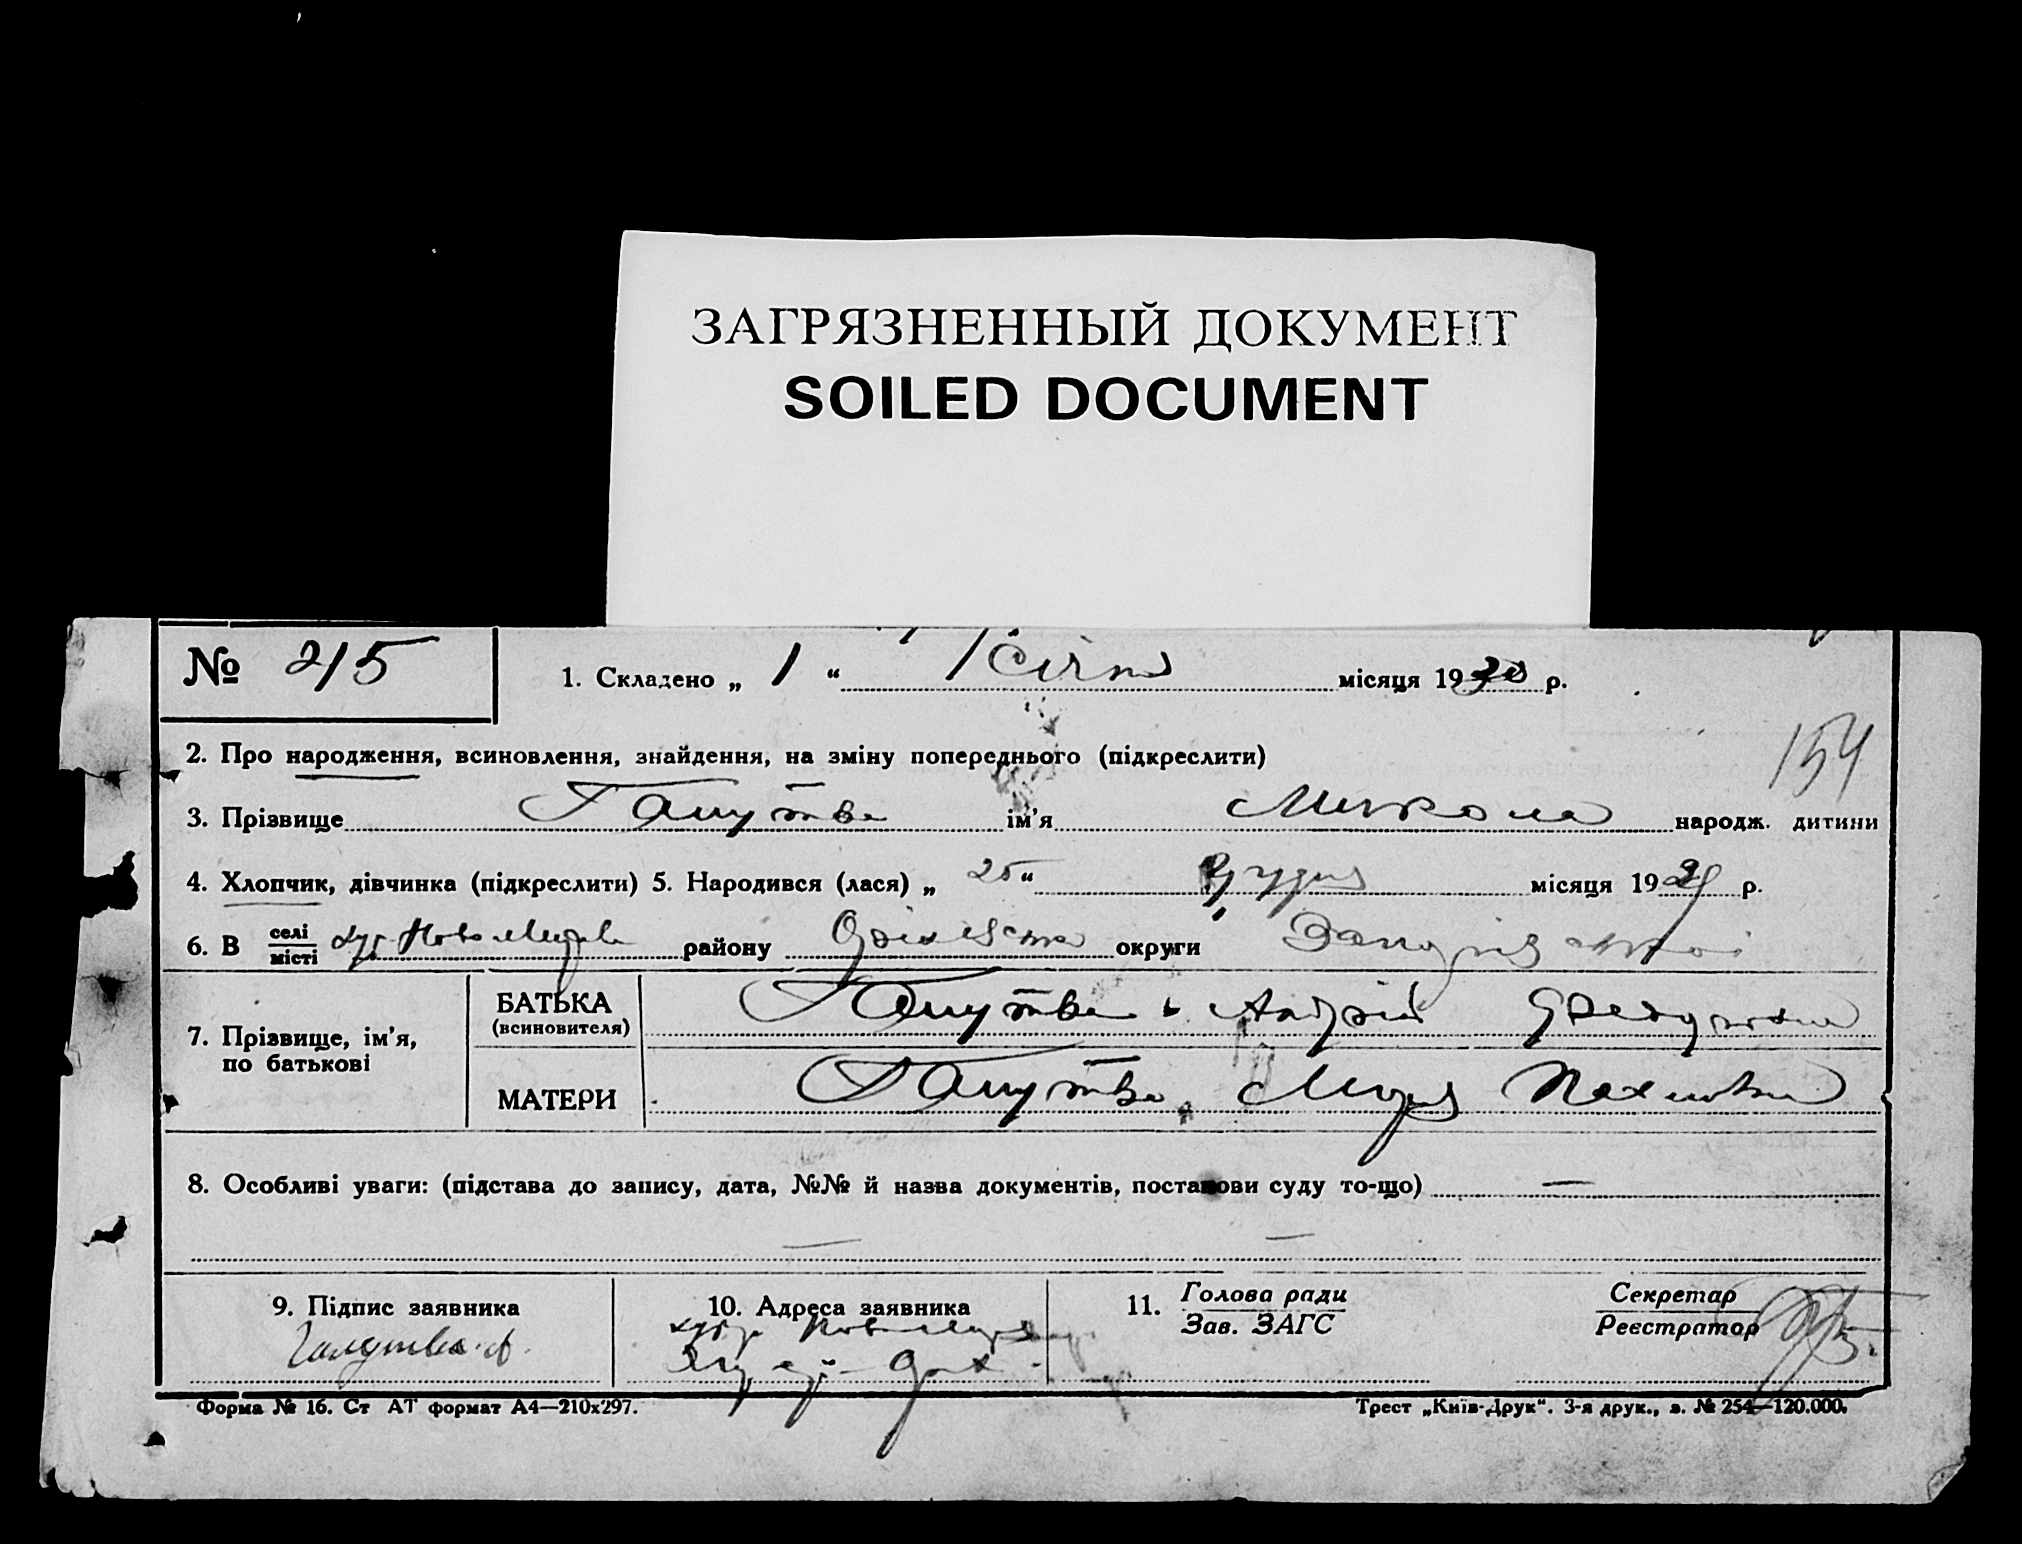 ЗАГРЯЗНЕННЫЙ ДОКУМЕНТ
SOILED DOCUMENT
№ 215
1. Складено „ 1 “ Січня місяця 1930 р.
154
2. Про народження, всиновлення, знайдення, на зміну попереднього (підкреслити)
3. Прізвище ім'я Микола народж. дитини
4. Хлопчик, дівчинка (підкреслити) 5. Народився (лася) „ 25 “ Грудня місяця 1929 р.
6. В селі місті хут. району округи
7. Прізвище, ім'я, по батькові
БАТЬКА (всиновителя) Андрій
МАТЕРИ Марія
8. Особливі уваги: (підстава до запису, дата, №№ й назва документів, постанови суду то-що) —
— —
9. Підпис заявника
10. Адреса заявника
11. Голова ради
Зав. ЗАГС
Секретар
Реєстратор
Форма № 16. Ст АТ формат А4—210х297.
Трест „Київ-Друк“. 3-я друк., з. № 254—120.000.